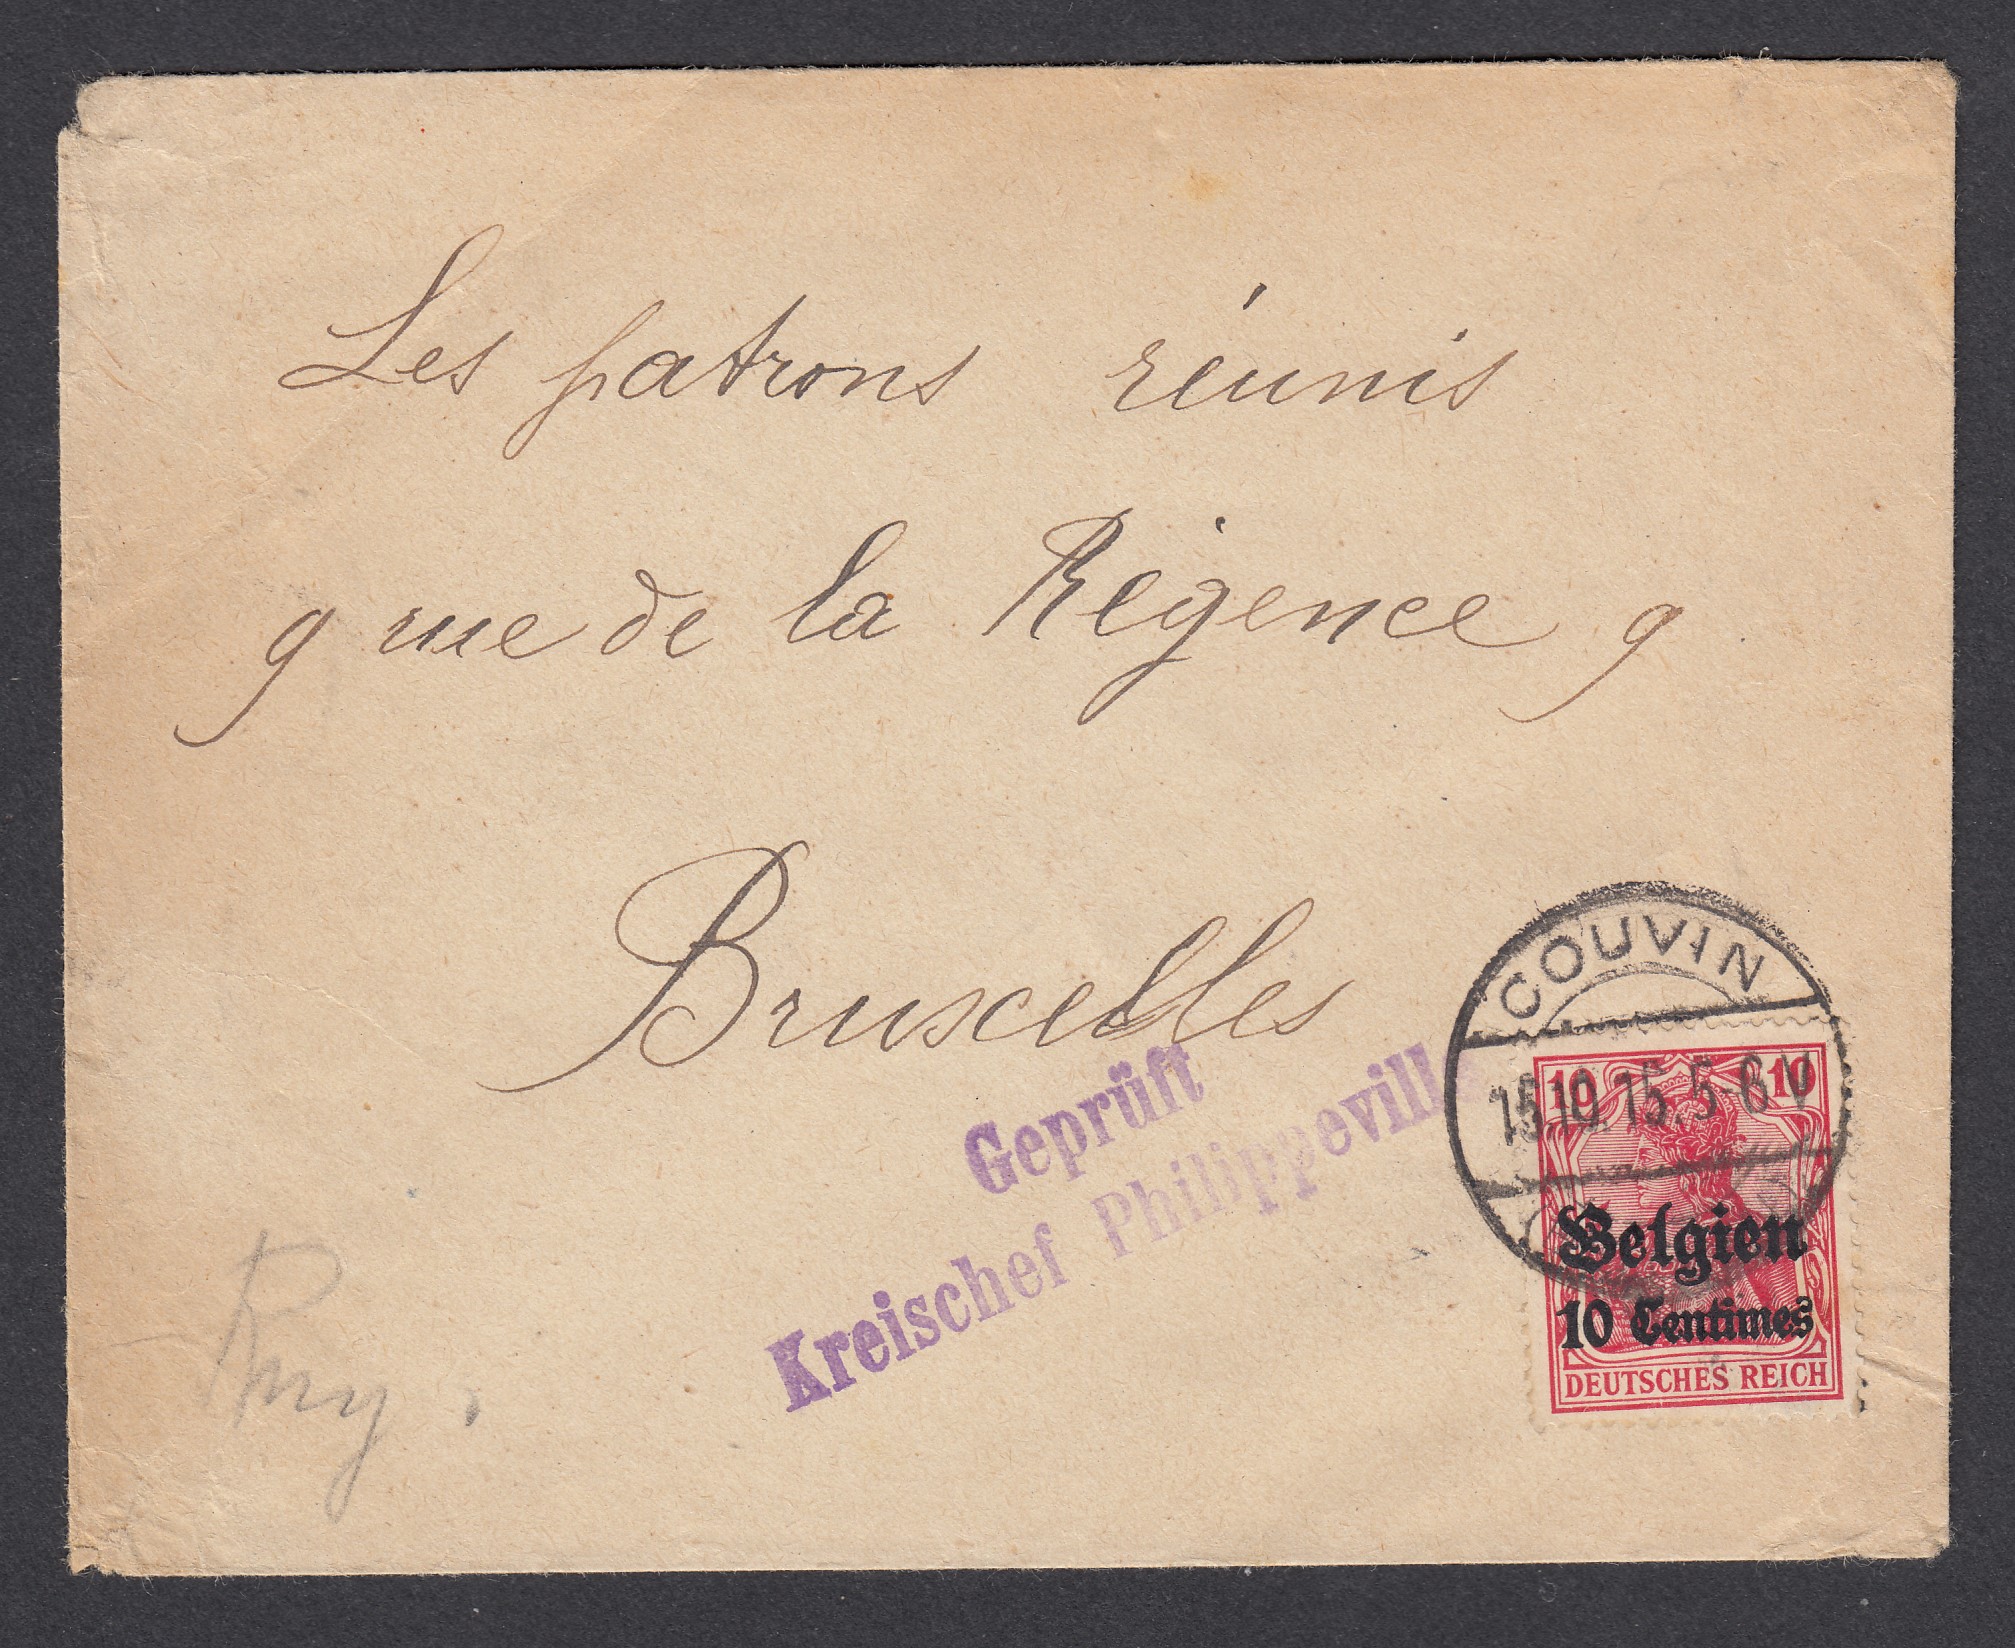 Les patrons réunis
9 rue de la Régence 9
Bruxelles
Geprüft
Kreischef Philippeville
COUVIN
15.10.15. 5-6 V
10 10
Belgien
10 Centimes
DEUTSCHES REICH